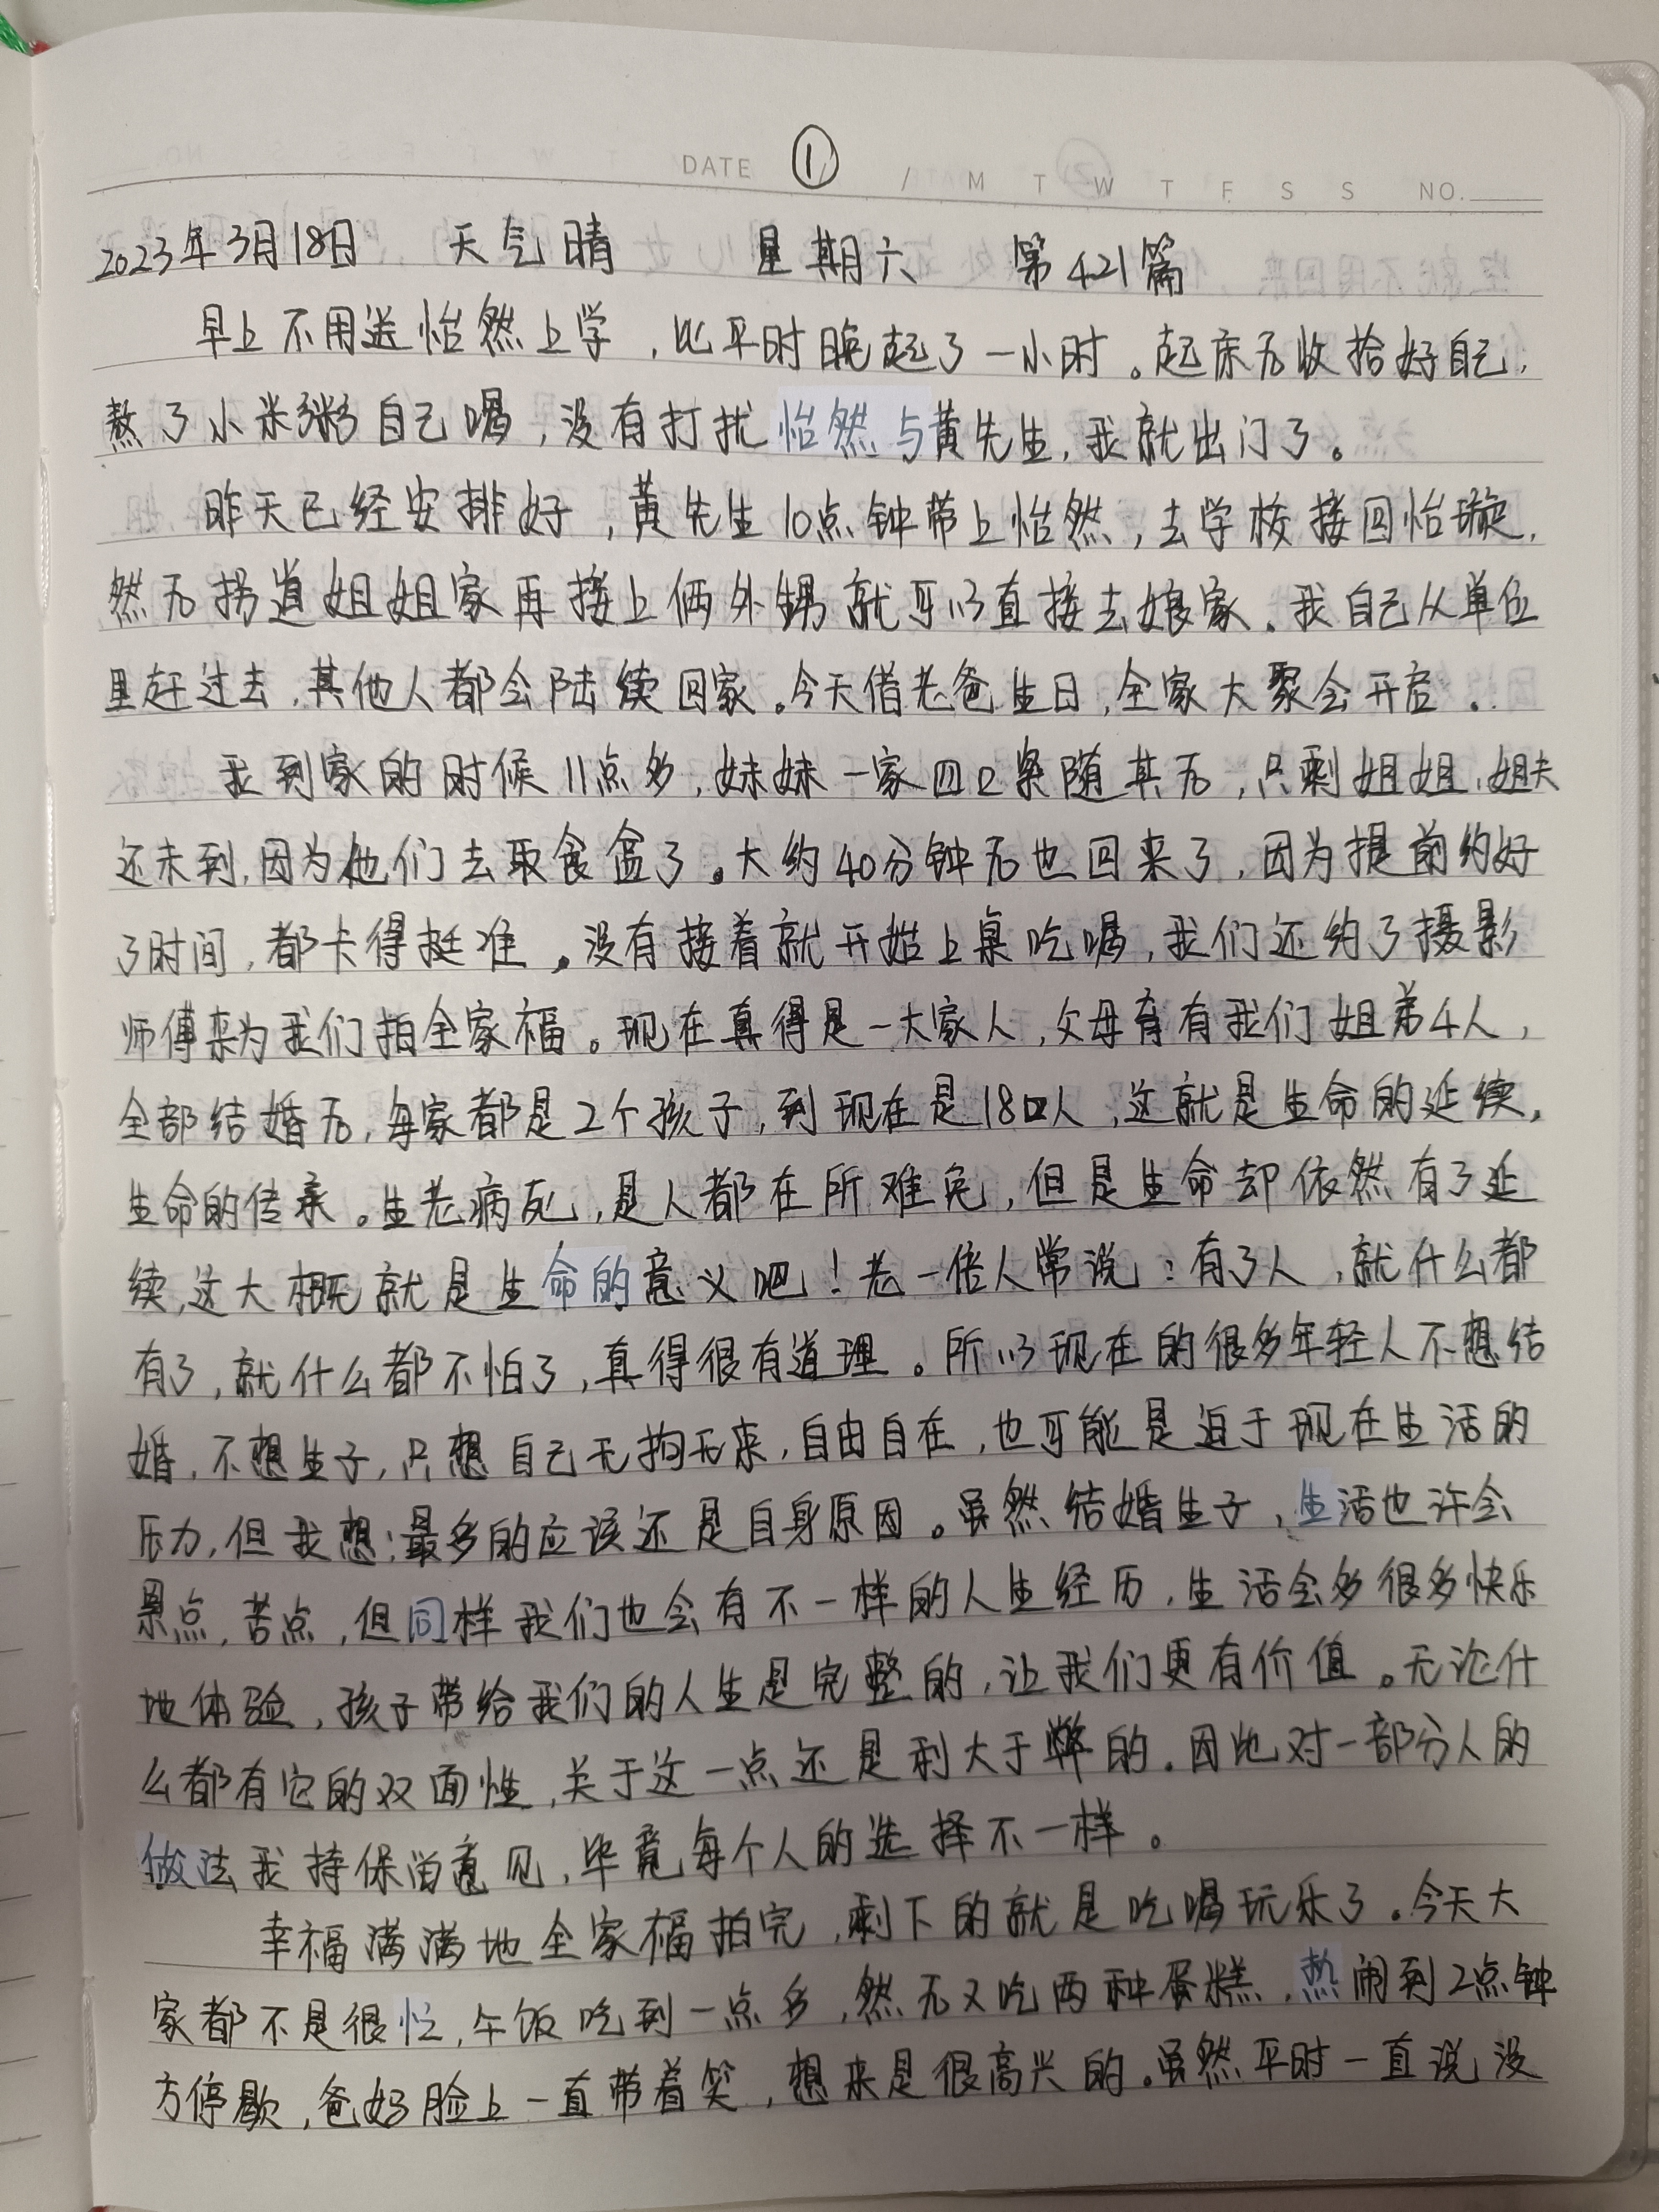 DATE ① / M T W T F S S NO.
2023年3月18日 天气晴 星期六 第421篇
早上不用送怡然上学，比平时晚起了一小时。起床后收拾好自己，
熬了小米粥自己喝，没有打扰怡然与黄先生，我就出门了。
昨天已经安排好，黄先生10点钟带上怡然，去学校接回怡璇，
然后拐道姐姐家再接上俩外甥就可以直接去娘家。我自己从单位
里赶过去，其他人都会陆续回家。今天借老爸生日，全家大聚会开启。
我到家的时候11点多，妹妹一家四口紧随其后，只剩姐姐、姐夫
还未到，因为他们去取食盒了。大约40分钟后也回来了，因为提前约好
了时间，都卡得挺准。没有接着就开始上桌吃喝，我们还约了摄影
师傅来为我们拍全家福。现在真得是一大家人，父母育有我们姐弟4人，
全部结婚后，每家都是2个孩子，到现在是18口人，这就是生命的延续，
生命的传承。生老病死，是人都在所难免，但是生命却依然有了延
续，这大概就是生命的意义吧！老一倍人常说：有了人，就什么都
有了，就什么都不怕了，真得很有道理。所以现在的很多年轻人不想结
婚，不想生子，只想自己无拘无束，自由自在，也可能是迫于现在生活的
压力，但我想：最多的应该还是自身原因。虽然结婚生子，生活也许会
累点，苦点，但同样我们也会有不一样的人生经历，生活会多很多快乐
地体验，孩子带给我们的人生是完整的，让我们更有价值。无论什
么都有它的双面性，关于这一点还是利大于弊的。因此对一部分人的
做法我持保留意见，毕竟每个人的选择不一样。
幸福满满地全家福拍完，剩下的就是吃喝玩乐了。今天大
家都不是很忙，午饭吃到一点多，然后又吃两种蛋糕，热闹到2点钟
方停歇，爸妈脸上一直带着笑，想来是很高兴的。虽然平时一直说没